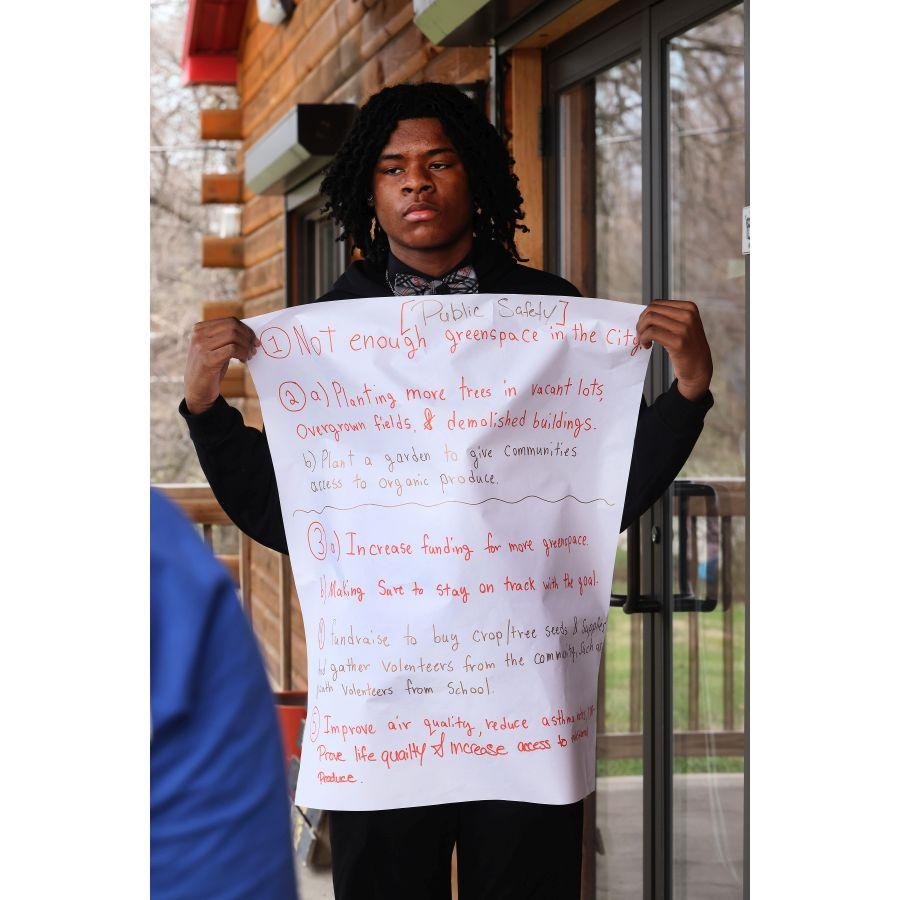 [Public Safety]
① Not enough greenspace in the City.
② a) Planting more trees in vacant lots,
Overgrown fields, & demolished buildings.
b) Plant a garden to give communities
access to organic produce.
③ a) Increase funding for more greenspace.
b) Making Sure to stay on track with the goal.
fundraise to buy crop/tree seeds & Supplies
gather Volenteers from the community, Such as
youth Volenteers from School.
⑤ Improve air quality, reduce asthma
Prove life quailty & increase access to
Produce.